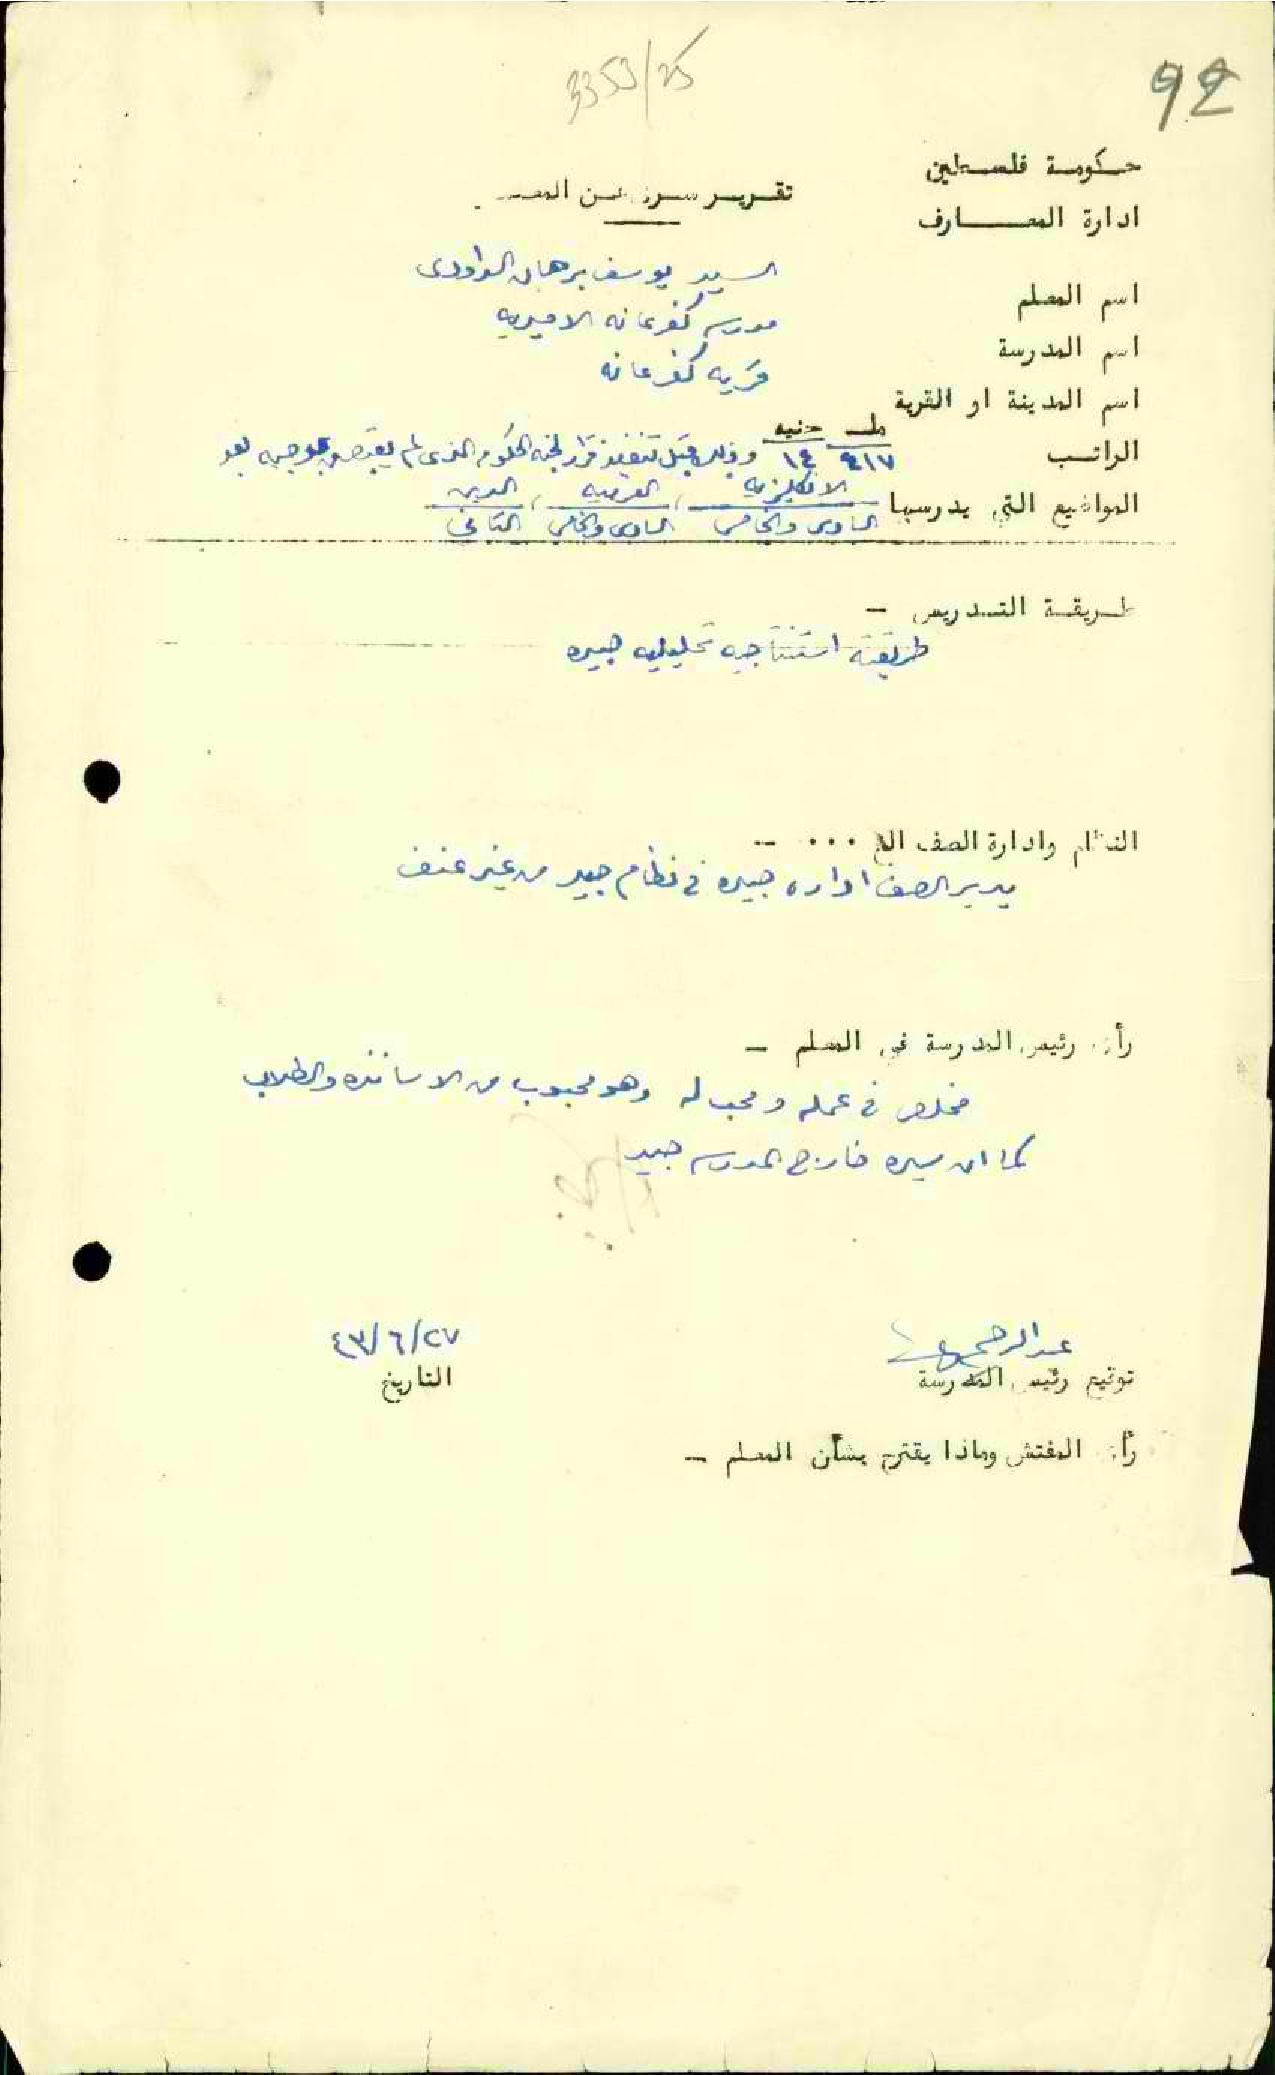 3353/25
92
حكومة فلسطين
تقرير سري عن المعلم
ادارة المعارف
اسم المعلم السيد يوسف برهان الداودى
اسم المدرسة مدرسه كفرعانه الاميريه
اسم المدينة او القرية قريه كفرعانه
مل جنيه
الراتب ٩١٧ ١٤ وذلك قبل تنفيذ قرار لجنه الحكومه الذى لم يقبض بموجبه بعد
المواضيع التي يدرسها الانكليزيه، العربيه، الدين
السادس والخامس السادس والخامس الثاني
طريقة التدريس –
طريقته استنتاجيه تحليليه جيده
النظام وادارة الصف الخ ... --
يدير الصف اداره جيده في نظام جيد من غير عنف
رأى رئيس المدرسة في المعلم –
مخلص في عمله ومحب له وهو محبوب من الاساتذه والطلاب
كما ان سيره خارج المدرسه جيد
عبدالرحمن
٤٣/٦/٢٧
توقيع رئيس المدرسة التاريخ
رأى المفتش وماذا يقترح بشأن المعلم –